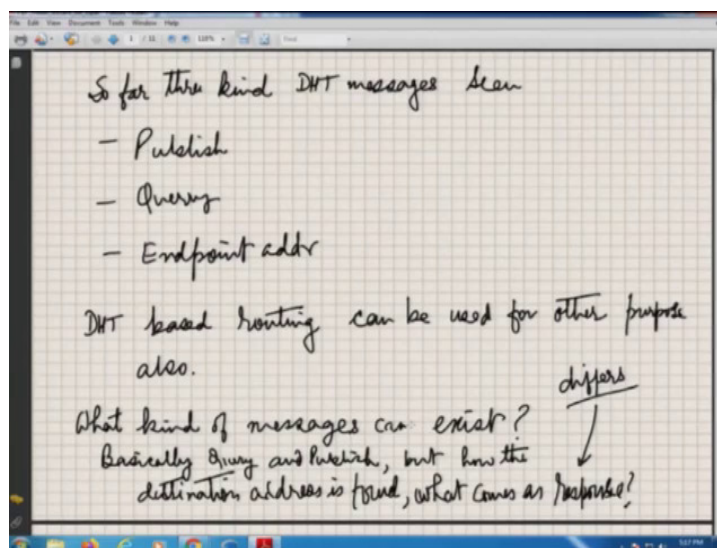 File Edit View Document Tools Window Help
1 / 11 118% Find
So far three kind DHT messages seen
- Publish
- Query
- Endpoint addr
DHT based routing can be used for other purpose
also.
differs
What kind of messages can exist?
Basically Query and Publish, but how the
destination address is found, what comes as response?
5:17 PM